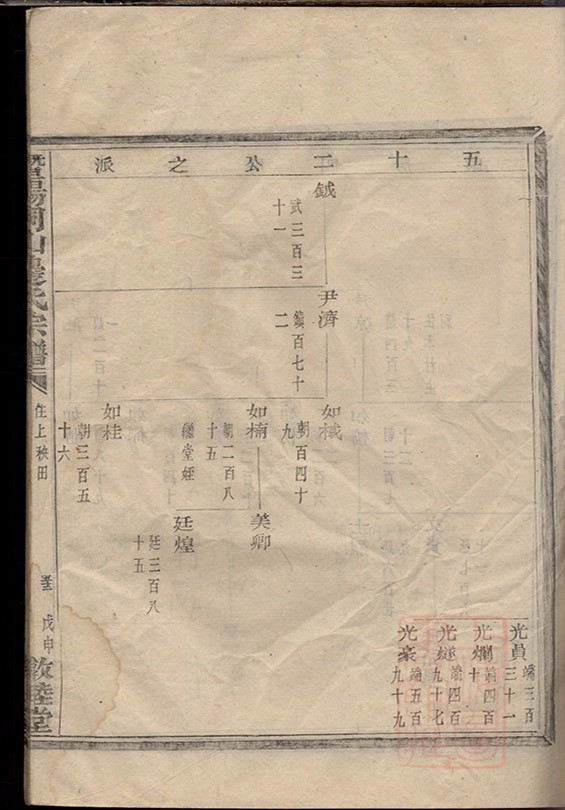 五十二公之派
鉞
武三百三
十一
尹濟
鎮百七十
二
如棫
朝百四十
九
如楠
朝二百八
十五
繼堂姪
如桂
朝三百五
十六
美卿
廷煌
廷三百八
十五
光員
端三百
三十一
光爛
端四百
十
光
端四百
九十七
光豪
端五百
九十九
暨陽
山
氏宗譜
住上秧田
戊申
敦睦堂